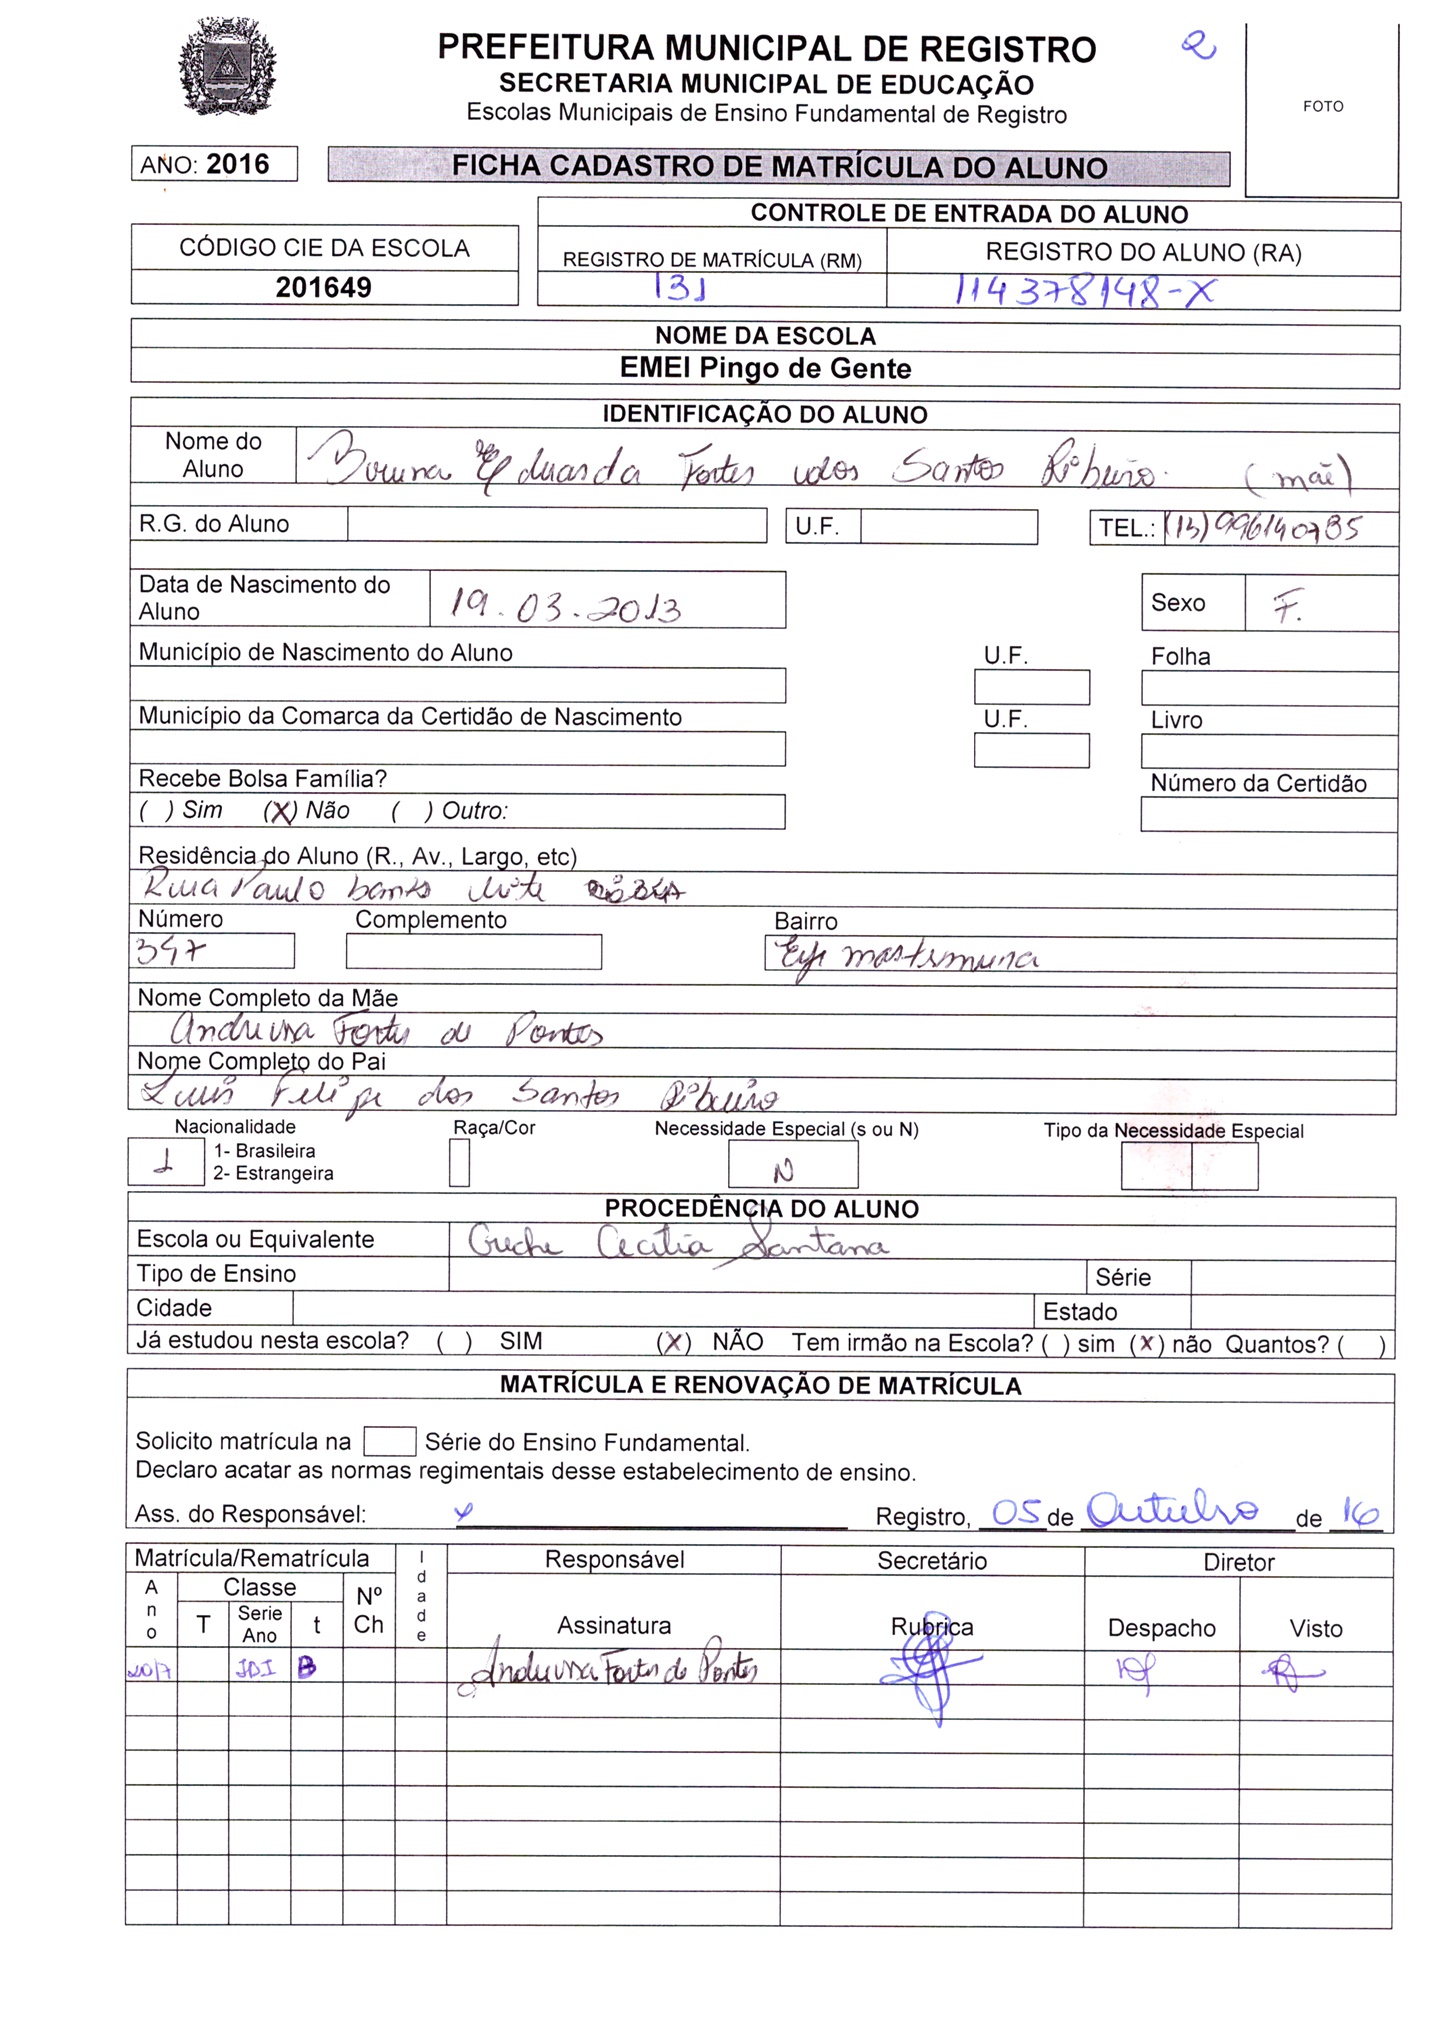 PREFEITURA MUNICIPAL DE REGISTRO
2
SECRETARIA MUNICIPAL DE EDUCAÇÃO
Escolas Municipais de Ensino Fundamental de Registro
FOTO
ANO: 2016
FICHA CADASTRO DE MATRÍCULA DO ALUNO
CONTROLE DE ENTRADA DO ALUNO
CÓDIGO CIE DA ESCOLA
REGISTRO DE MATRÍCULA (RM)
REGISTRO DO ALUNO (RA)
201649
131
114378148-X
NOME DA ESCOLA
EMEI Pingo de Gente
IDENTIFICAÇÃO DO ALUNO
Nome do Aluno Eduarda Fortes dos Santos Ribeiro (mãe)
R.G. do Aluno U.F. TEL.:
Data de Nascimento do Aluno 19.03.2013 Sexo F.
Município de Nascimento do Aluno U.F. Folha
Município da Comarca da Certidão de Nascimento U.F. Livro
Recebe Bolsa Família? Número da Certidão
( ) Sim (X) Não ( ) Outro:
Residência do Aluno (R., Av., Largo, etc)
Rua Paulo
Número Complemento Bairro
347
Nome Completo da Mãe
Fortes de Pontes
Nome Completo do Pai
Luis Felipe dos Santos Ribeiro
Nacionalidade Raça/Cor Necessidade Especial (s ou N) Tipo da Necessidade Especial
1 1- Brasileira
2- Estrangeira
N
PROCEDÊNCIA DO ALUNO
Escola ou Equivalente Creche Cecilia Santana
Tipo de Ensino Série
Cidade Estado
Já estudou nesta escola? ( ) SIM (X) NÃO Tem irmão na Escola? ( ) sim (x) não Quantos? ( )
MATRÍCULA E RENOVAÇÃO DE MATRÍCULA
Solicito matrícula na Série do Ensino Fundamental.
Declaro acatar as normas regimentais desse estabelecimento de ensino.
Ass. do Responsável: x Registro, 05 de Outubro de 16
Matrícula/Rematrícula Idade Responsável Secretário Diretor
Ano Classe Nº Ch
T Serie Ano t Assinatura Rubrica Despacho Visto
2017 B Fortes de Pontes